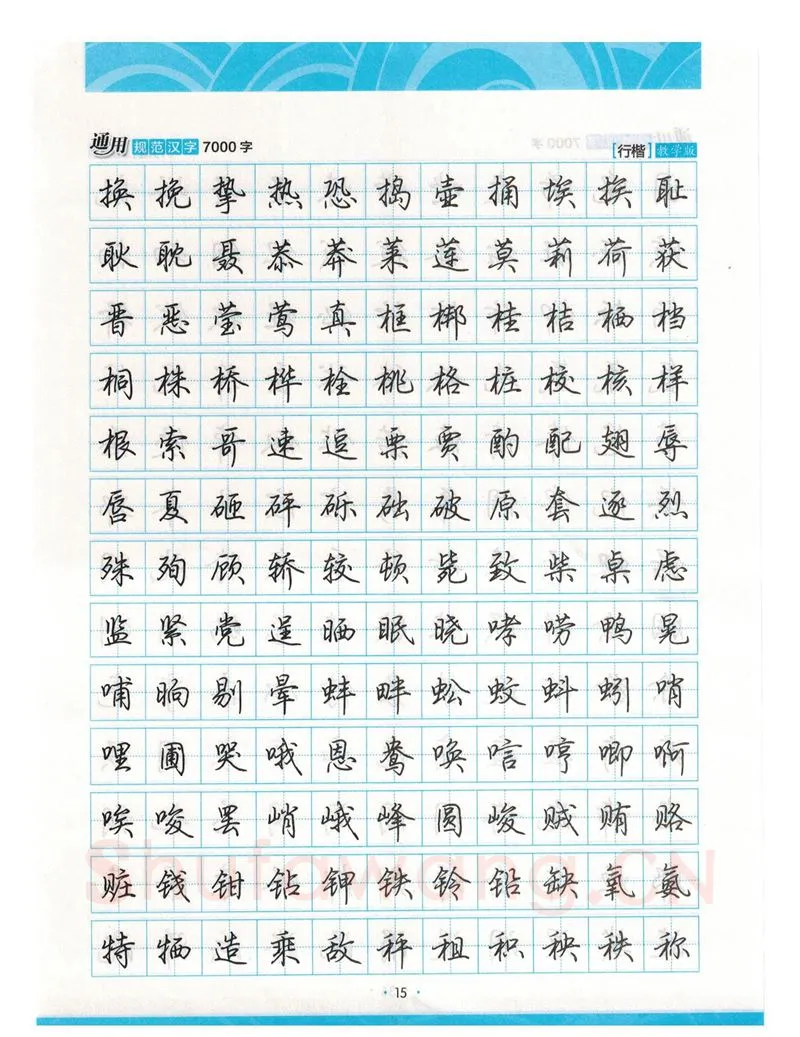 通用 规范汉字 7000 字 [行楷] 教学版
换挽挚热恐捣壶捅埃挨耻
耿耽聂恭莽莱莲莫莉荷获
晋恶莹莺真框梆桂桔栖档
桐株桥桦栓桃格桩校核样
根索哥速逗栗贾酌配翅辱
唇夏砸砰砾础破原套逐烈
殊殉顾轿较顿毙致柴桌虑
监紧党逞晒眠晓哮唠鸭晃
哺晌剔晕蚌畔蚣蚊蚪蚓哨
哩圃哭哦恩鸯唤唁哼唧啊
唉唆罢峭峨峰圆峻贼贿赂
赃钱钳钻钾铁铃铅缺氧氨
特牺造乘敌秤租积秧秩称
· 15 ·
Shufawang.CN